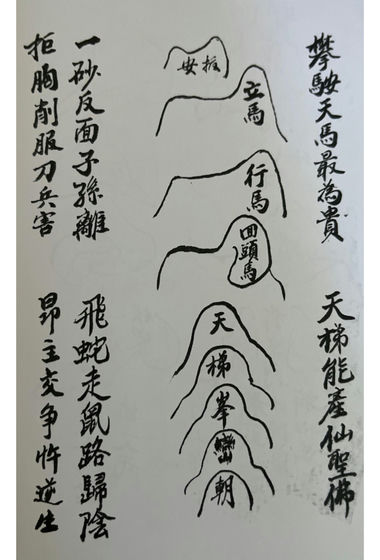 攀鞍天馬最為貴
天梯能產仙聖佛
立馬
行馬
回頭馬
天
梯
峯
巒
朝
一砂反面子孫離
飛蛇走鼠路歸陰
拒胸削服刀兵害
昂主交爭忤逆生